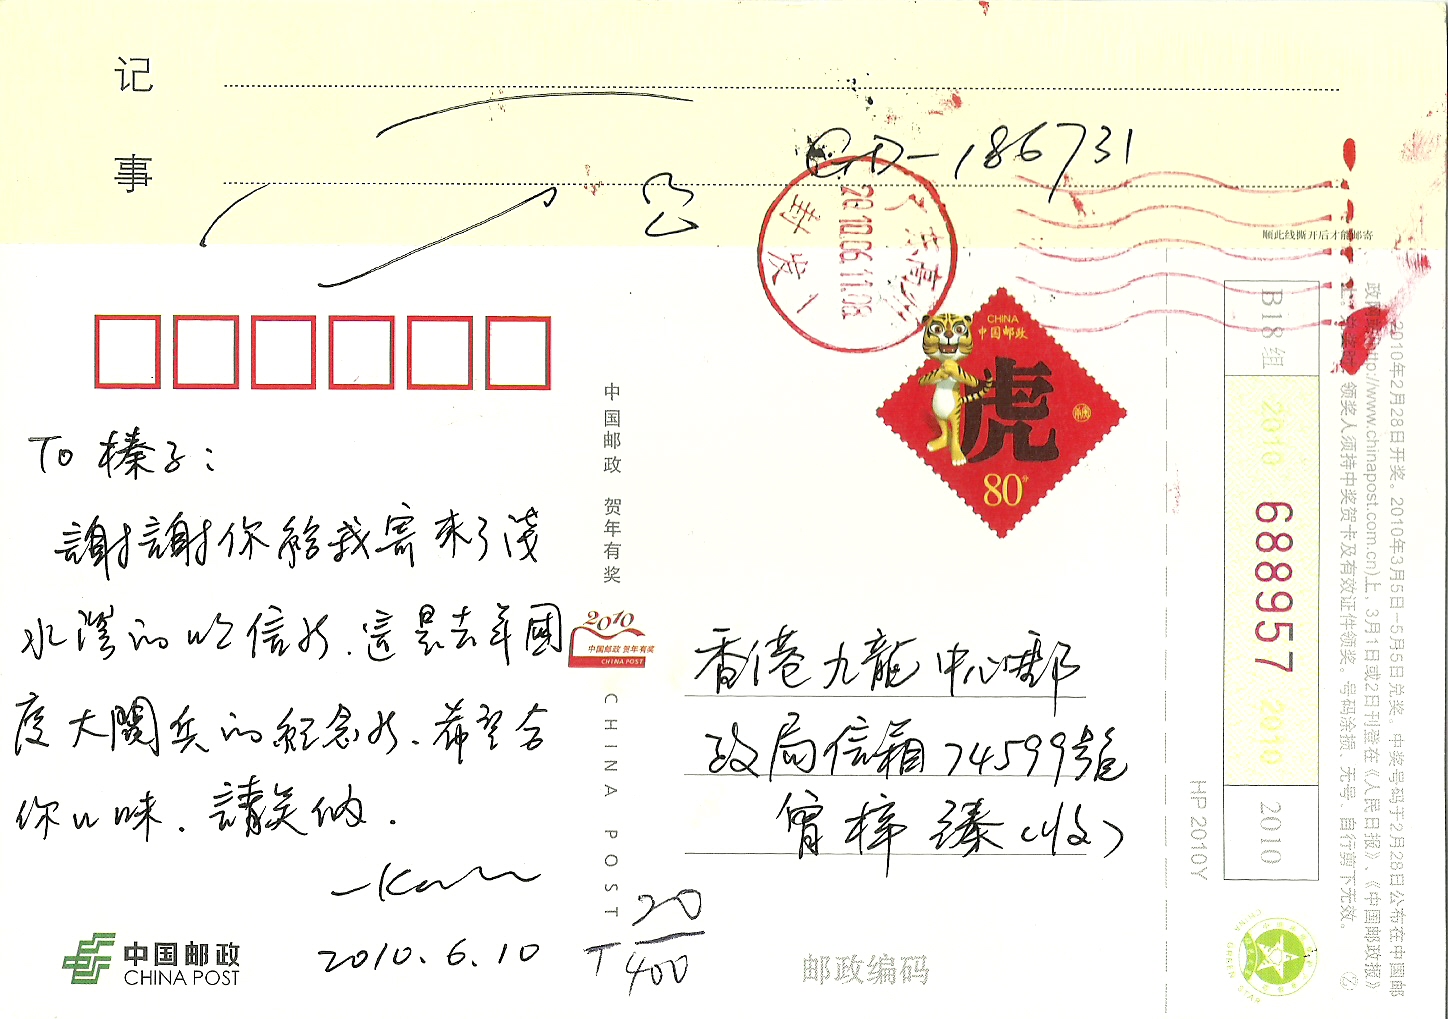 记
事
GD-186731
公
广东高州
2010.06.11.08
封发
顺此线撕开后才能邮寄
CHINA
中国邮政
虎
80分
To 榛子：
謝謝你給我寄來了淺
水灣的明信片，這是去年國
度大閱兵的紀念片，希望合
你口味，請笑納．
2010.6.10
中国邮政
CHINA POST
中国邮政 贺年有奖
2010
中国邮政 贺年有奖
CHINA POST
CHINA POST
T 20/400
香港九龍中心郵
政局信箱74599號
曾梓臻（收）
邮政编码
HP 2010Y
B18组
2010
688957
2010
2010
2010年2月28日开奖。2010年3月5日—5月5日兑奖。中奖号码于2月28日公布在中国邮
政网(http://www.chinapost.com.cn)上，3月1日或2日刊登在《人民日报》、《中国邮政报》
领奖人须持中奖贺卡及有效证件领奖。号码涂损、无号、自行剪下无效。